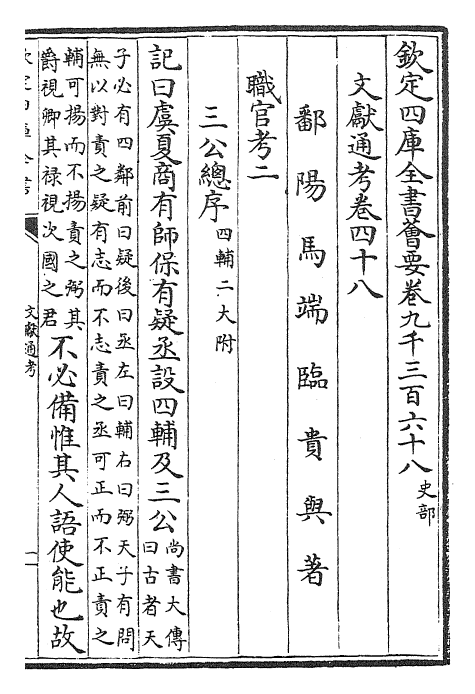 欽定四庫全書薈要卷九千三百六十八 史部
文獻通考卷四十八
鄱陽馬端臨貴與著
職官考二
三公總序 四輔二大附
記曰虞夏商有師保有疑丞設四輔及三公 尚書大傳
曰古者天
子必有四鄰前曰疑後曰丞左曰輔右曰弼天子有問
無以對責之疑有志而不志責之丞可正而不正責之
輔可揚而不揚責之弼其
爵視卿其祿視次國之君 不必備惟其人語使能也故
文獻通考